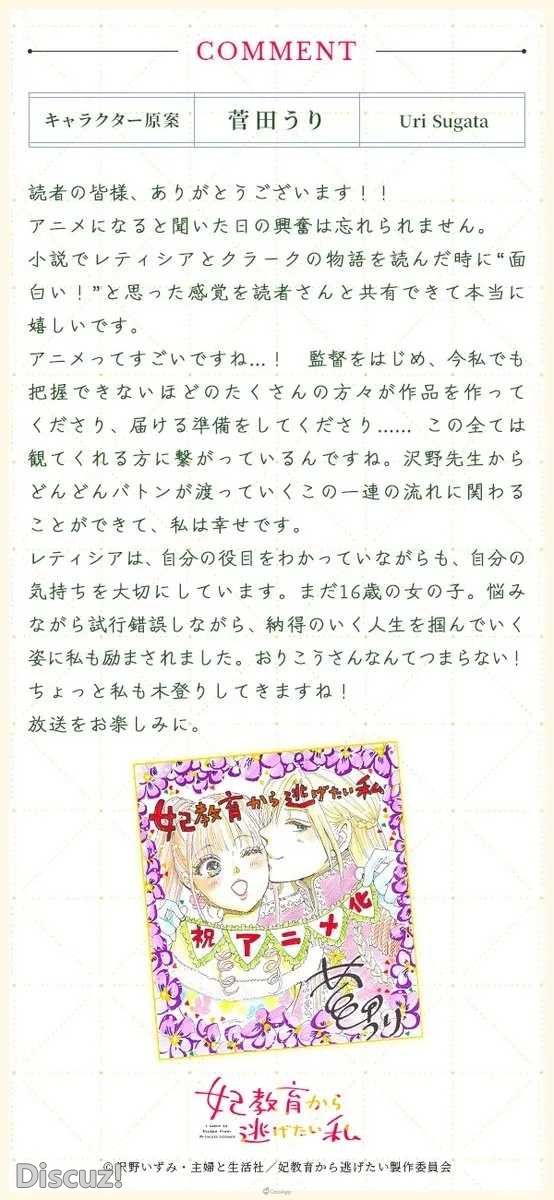 COMMENT
キャラクター原案 菅田うり Uri Sugata
読者の皆様、ありがとうございます！！
アニメになると聞いた日の興奮は忘れられません。
小説でレティシアとクラークの物語を読んだ時に“面
白い！”と思った感覚を読者さんと共有できて本当に
嬉しいです。
アニメってすごいですね…！　監督をはじめ、今私でも
把握できないほどのたくさんの方々が作品を作って
くださり、届ける準備をしてくださり…… この全ては
観てくれる方に繋がっているんですね。沢野先生から
どんどんバトンが渡っていくこの一連の流れに関わる
ことができて、私は幸せです。
レティシアは、自分の役目をわかっていながらも、自分の
気持ちを大切にしています。まだ16歳の女の子。悩み
ながら試行錯誤しながら、納得のいく人生を掴んでいく
姿に私も励まされました。おりこうさんなんてつまらない！
ちょっと私も木登りしてきますね！
放送をお楽しみに。
妃教育から逃げたい私
祝アニメ化
菅田うり
妃教育から
I Want to
Escape from
Princess Lessons
逃げたい私
©沢野いずみ・主婦と生活社／妃教育から逃げたい製作委員会
Discuz!